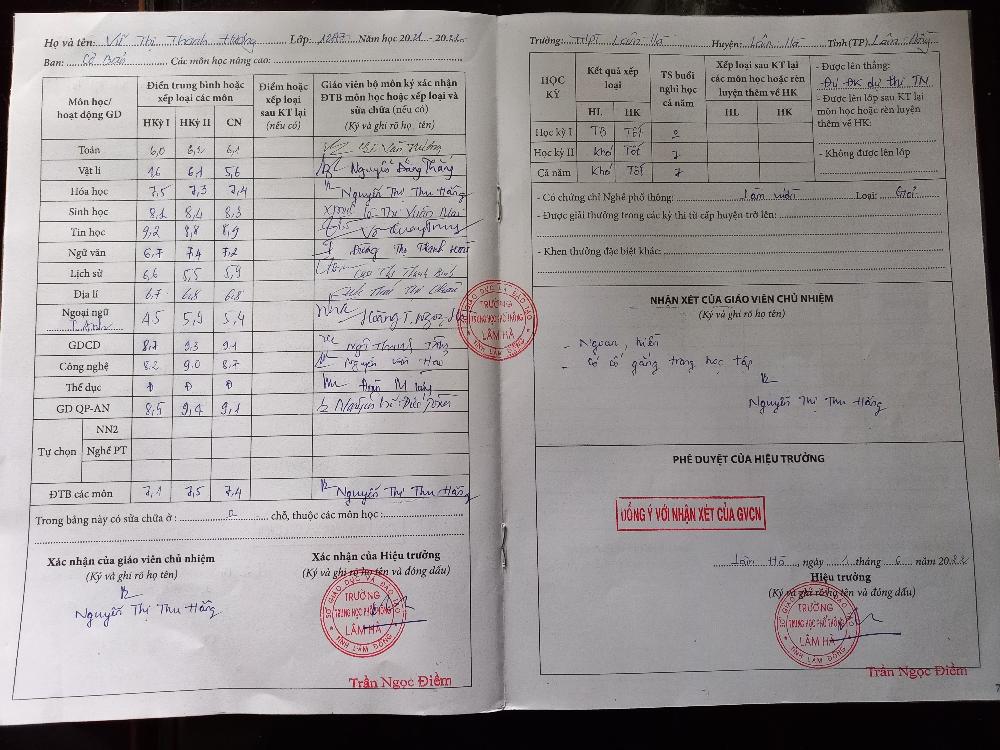 Họ và tên: Vũ Thị Thanh Hương Lớp: 12A7 Năm học 2021 - 2022
Ban: Cơ bản Các môn học nâng cao:
Môn học/ hoạt động GD | Điểm trung bình hoặc xếp loại các môn | Điểm hoặc xếp loại sau KT lại (nếu có) | Giáo viên bộ môn ký xác nhận ĐTB môn học hoặc xếp loại và sửa chữa (nếu có) (Ký và ghi rõ họ tên)
HKỳ I | HKỳ II | CN
Toán 6,0 6,2 6,1
Vật lí 5,6 Nguyễn Đăng Thắng
Hóa học 7,5 7,3 7,4 Nguyễn Thị Thu Hằng
Sinh học 8,1 8,4 8,3
Tin học 9,2 8,8 8,9
Ngữ văn 6,7 7,4 7,2
Lịch sử 6,6 5,5 5,9
Địa lí 6,7 6,8 6,8
Ngoại ngữ T.Anh 4,5 5,9 5,4 Hoàng T. Ngọc
GDCD 8,7 9,3 9,1
Công nghệ 8,2 9,0 8,7 Nguyễn Văn
Thể dục Đ Đ Đ
GD QP-AN 8,5 9,4 9,1
Tự chọn
NN2
Nghề PT
ĐTB các môn 7,1 7,5 7,4 Nguyễn Thị Thu Hằng
Trong bảng này có sửa chữa ở : 0 chỗ, thuộc các môn học :
Xác nhận của giáo viên chủ nhiệm
(Ký và ghi rõ họ tên)
Nguyễn Thị Thu Hằng
Xác nhận của Hiệu trưởng
(Ký và ghi rõ họ tên và đóng dấu)
SỞ GIÁO DỤC VÀ ĐÀO TẠO
TRƯỜNG
TRUNG HỌC PHỔ THÔNG
LÂM HÀ
TỈNH LÂM ĐỒNG
Trần Ngọc Điềm
Trường: THPT Lâm Hà Huyện: Lâm Hà Tỉnh (TP) Lâm Đồng
HỌC KỲ | Kết quả xếp loại | TS buổi nghỉ học cả năm | Xếp loại sau KT lại các môn học hoặc rèn luyện thêm về HK
HL | HK | HL | HK
Học kỳ I TB Tốt 0
Học kỳ II Khá Tốt 7
Cả năm Khá Tốt 7
- Được lên thẳng:
Đủ ĐK dự thi TN
- Được lên lớp sau KT lại môn học hoặc rèn luyện thêm về HK:
- Không được lên lớp
- Có chứng chỉ Nghề phổ thông: Làm vườn Loại: Giỏi
- Được giải thưởng trong các kỳ thi từ cấp huyện trở lên:
- Khen thưởng đặc biệt khác:
NHẬN XÉT CỦA GIÁO VIÊN CHỦ NHIỆM
(Ký và ghi rõ họ tên)
- Ngoan, hiền
- Có cố gắng trong học tập
Nguyễn Thị Thu Hằng
PHÊ DUYỆT CỦA HIỆU TRƯỞNG
ĐỒNG Ý VỚI NHẬN XÉT CỦA GVCN
Lâm Hà, ngày 1 tháng 6 năm 2022
Hiệu trưởng
(Ký và ghi rõ họ tên và đóng dấu)
SỞ GIÁO DỤC VÀ ĐÀO TẠO
TRƯỜNG
TRUNG HỌC PHỔ THÔNG
LÂM HÀ
TỈNH LÂM ĐỒNG
Trần Ngọc Điềm
SỞ GIÁO DỤC VÀ ĐÀO TẠO
TRƯỜNG
TRUNG HỌC PHỔ THÔNG
LÂM HÀ
7